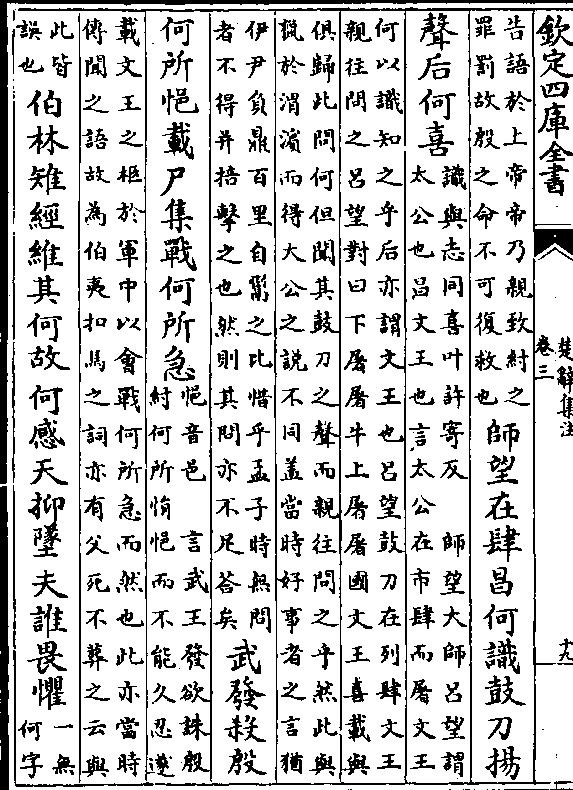 欽定四庫全書
楚辭集注
卷三
十九
告語於上帝帝乃親致紂之
罪罰故殷之命不可復救也
師望在肆昌何識鼓刀揚
聲后何喜
識與志同喜叶許寄反 師望大師呂望謂
太公也昌文王也言太公在市肆而屠文王
何以識知之乎后亦謂文王也呂望鼓刀在列肆文王
親往問之呂望對曰下屠屠牛上屠屠國文王喜載與
俱歸此問何但聞其鼓刀之聲而親往問之乎然此與
獵於渭濱而得大公之說不同蓋當時好事者之言猶
伊尹負鼎百里自鬻之比惜乎孟子時無問
者不得并掊擊之也然則其問亦不足答矣
武發殺殷
何所悒載尸集戰何所急
悒音邑 言武王發欲誅殷
紂何所悁悒而不能久忍遂
載文王之柩於軍中以會戰何所急而然也此亦當時
傳聞之語故為伯夷扣馬之詞亦有父死不葬之云與
此皆
誤也
伯林雉經維其何故何感天抑墜夫誰畏懼
一無
何字